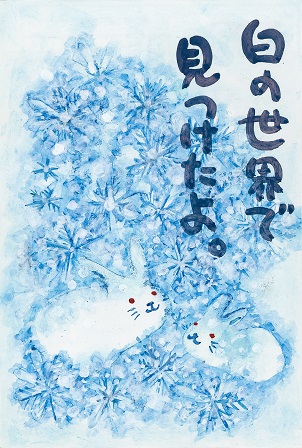 白の世界で
見つけたよ。